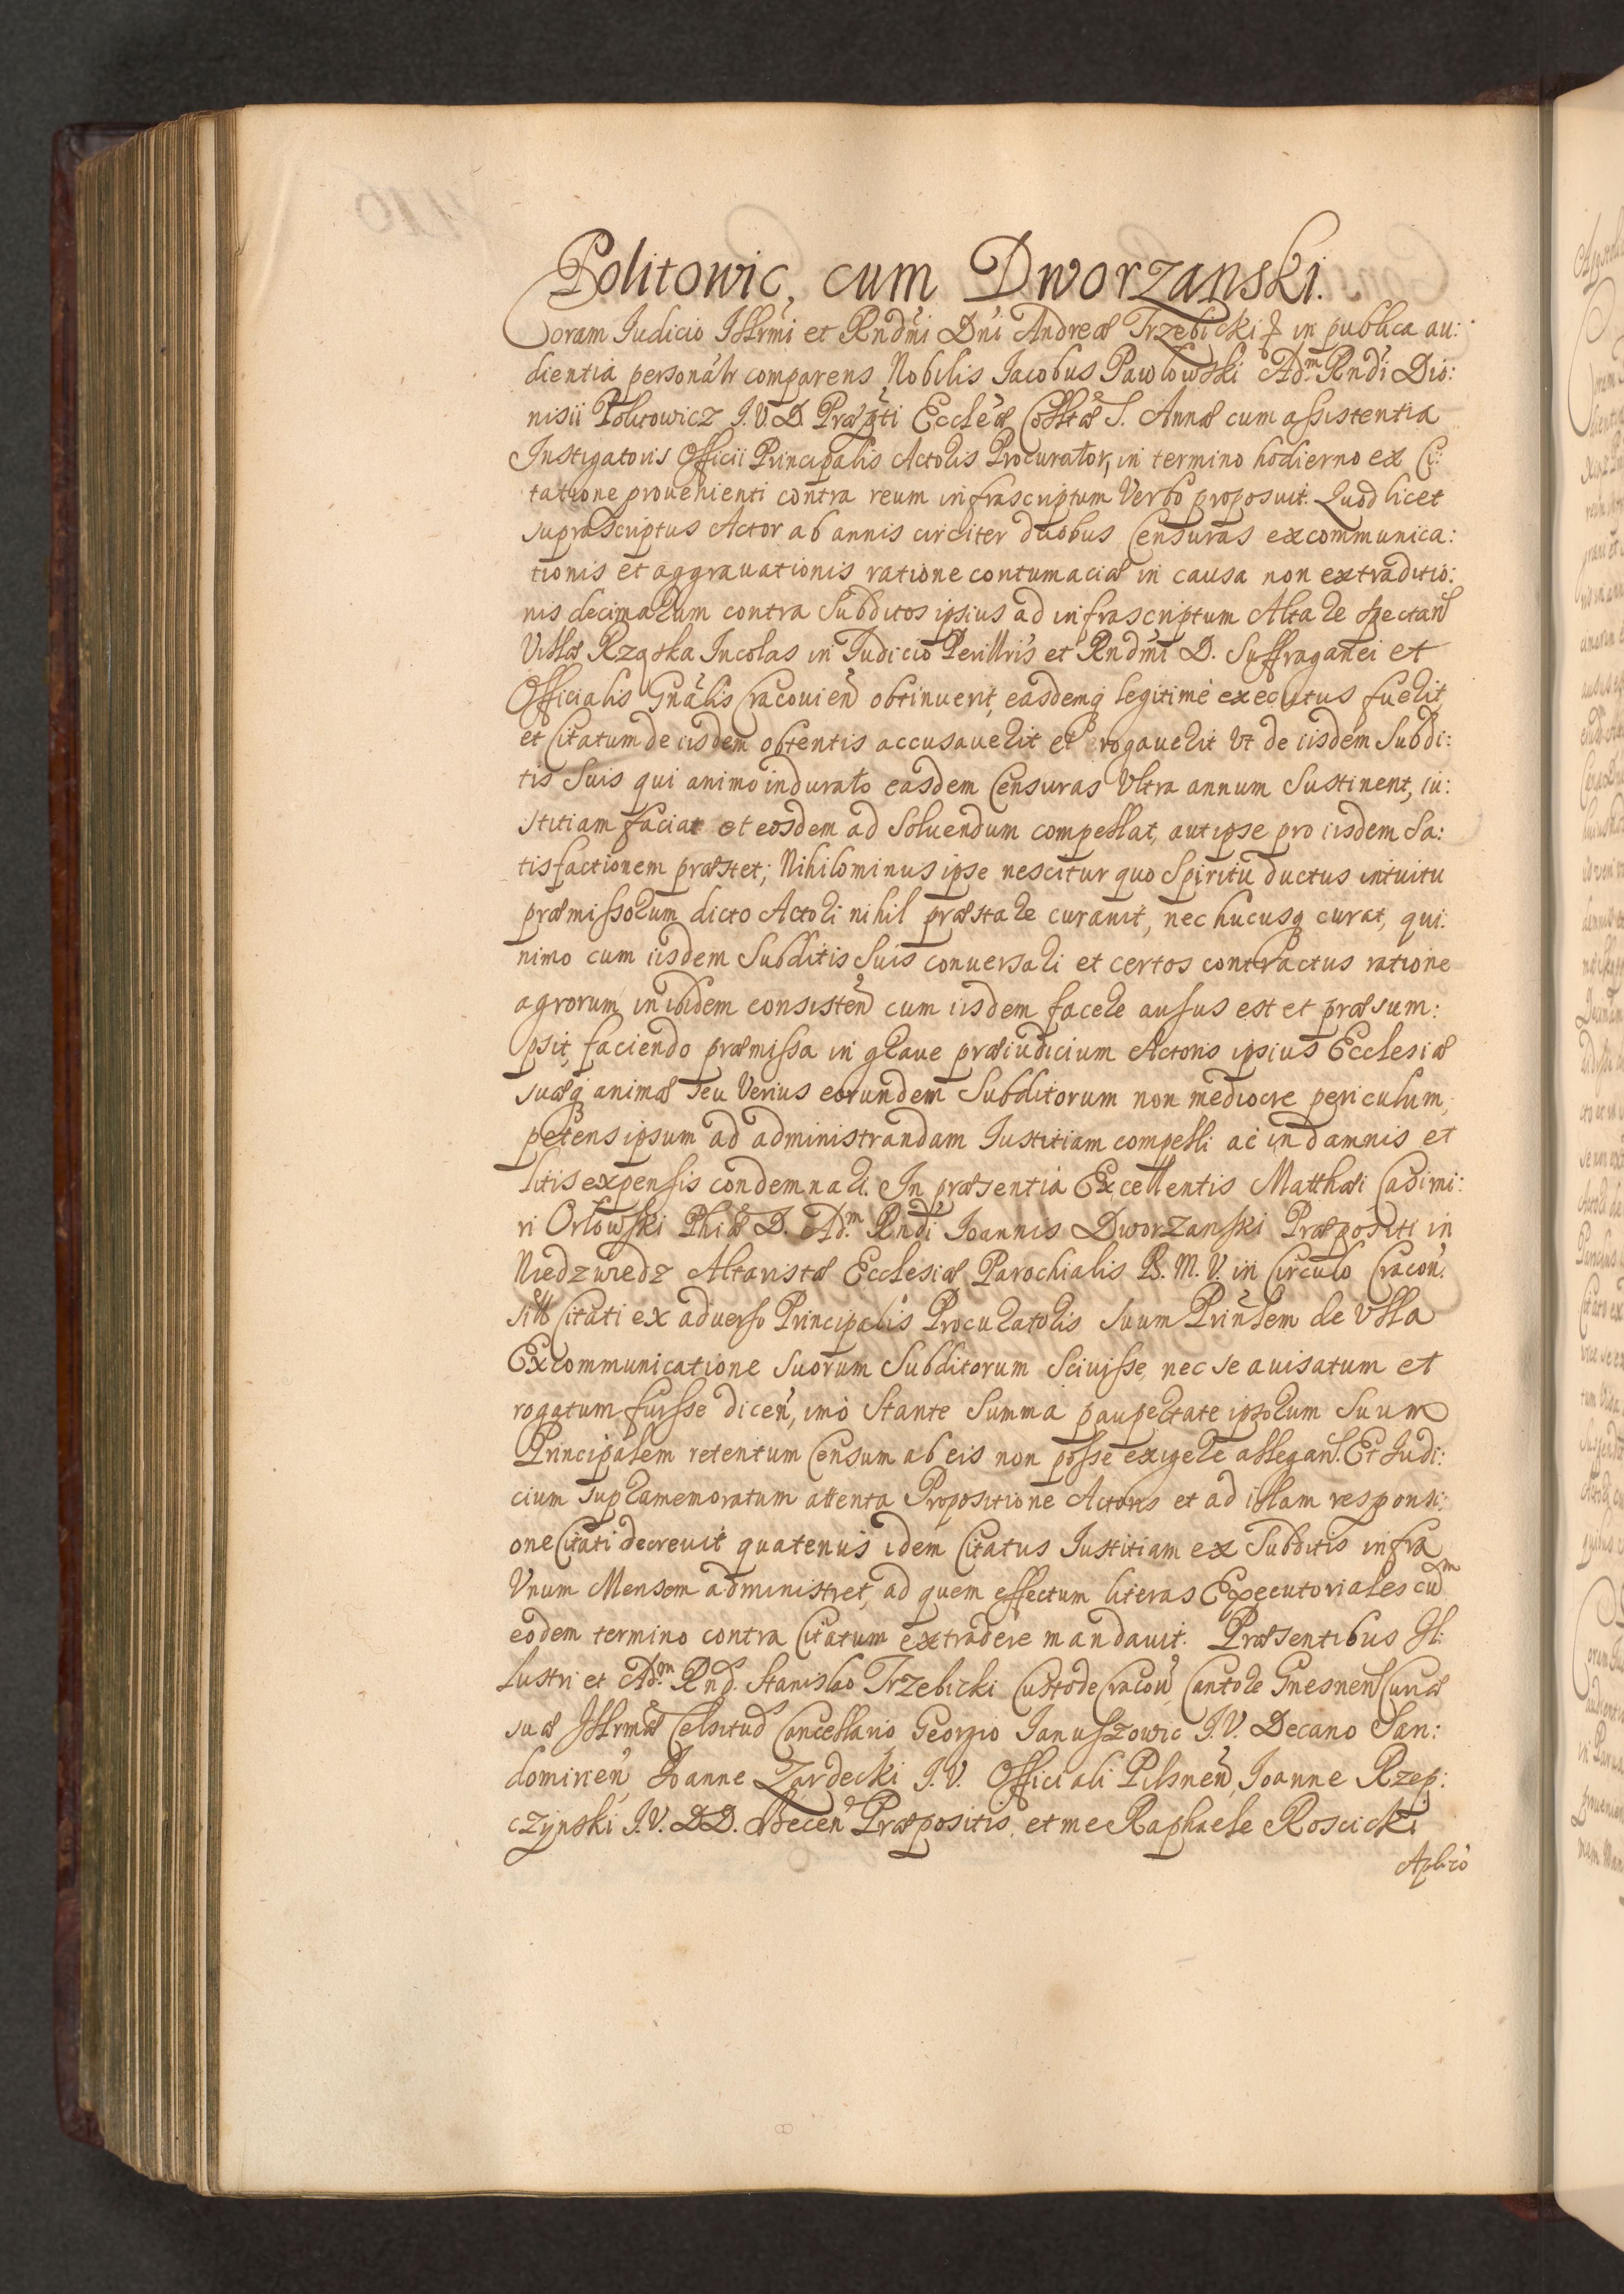 Politowic, cum Dworzanski.
Coram Iudicio Illrmi et Rndmi Dni Andreæ Trzebicki in publica au:
dientia personalr comparens Nobilis Iacobus Pawlowski Adm Rndi Dio:
nisii Politowicz I. V. D. Præpti Eccleæ Colltæ S. Annæ cum assistentia
Instigatoris Officii Principalis Actoris Procurator, in termino hodierno ex Ci:
tatione prouenienti contra reum infrascriptum Verbo proposuit. Quod licet
suprascriptus Actor ab annis circiter duobus Censuras excommunica:
tionis et aggrauationis ratione contumaciæ in causa non extraditio:
nis decimarum contra Subditos ipsius ad infrascriptum Altare spectan
Villæ Rząska Incolas in Iudicio Perillris et Rndmi D. Suffraganei et
Officialis Gnalis Cracouien obtinuerit, easdemq legitimè executus fuerit,
et Citatum de iisdem obtentis accusauerit et rogauerit Vt de iisdem Subdi:
tis Suis qui animo indurato easdem Censuras Vltra annum Sustinent, iu:
stitiam faciat et eosdem ad Soluendum compellat, aut ipse pro iisdem Sa:
tisfactionem præstet; Nihilominus ipse nescitur quo Spiritu ductus intuitu
præmissorum dicto Actori nihil præstare curauit, nec hucusq curat, qui:
nimo cum iisdem Subditis Suis conuersari et certos contractus ratione
agrorum inibidem consisten cum iisdem facere ausus est et præsum:
psit, faciendo præmissa in graue præiudicium Actoris ipsius Ecclesiæ
suæq animæ seu Verius eorundem Subditorum non mediocre periculum,
petens ipsum ad administrandam Iustitiam compelli ac in damnis et
litis expensis condemnari. In præsentia Excellentis Matthæi Casimi:
ri Orlowski Phiæ D. Adm Rndi Ioannis Dworzanski Præpositi in
Niedzwiedz Altaristæ Ecclesiæ Parochialis B. M. V. in Circulo Cracou.
Citati ex aduerso Principalis Procuratoris suum Prinlem de Vlla
Excommunicatione Suorum Subditorum Sciuisse, nec se auisatum et
rogatum fuisse dicen, imò Stante Summa paupertate ipsorum Suum
Principalem retentum Censum ab eis non posse exigere allegan. Et Iudi:
cium supramemoratum attenta Propositione Actoris et ad illam responsi:
one Citati decreuit quatenus idem Citatus Iustitiam ex Subditis infra
Vnum Mensem administret, ad quem effectum literas Executoriales cum
eodem termino contra Citatum extradere mandauit. Præsentibus Il:
lustri et Adm Rnd. Stanislao Trzebicki Custode Cracou, Cantore Gnesnen Curiæ
suæ Illrmæ Celsitud Cancellario Georgio Ianuszowic I. V. Decano San:
domirien Ioanne Zardecki I. V. Officiali Pilsnen, Ioanne Rzep:
czynski I. V. DD. Becen Præpositis, et me Raphaele Roscicki
Aplico